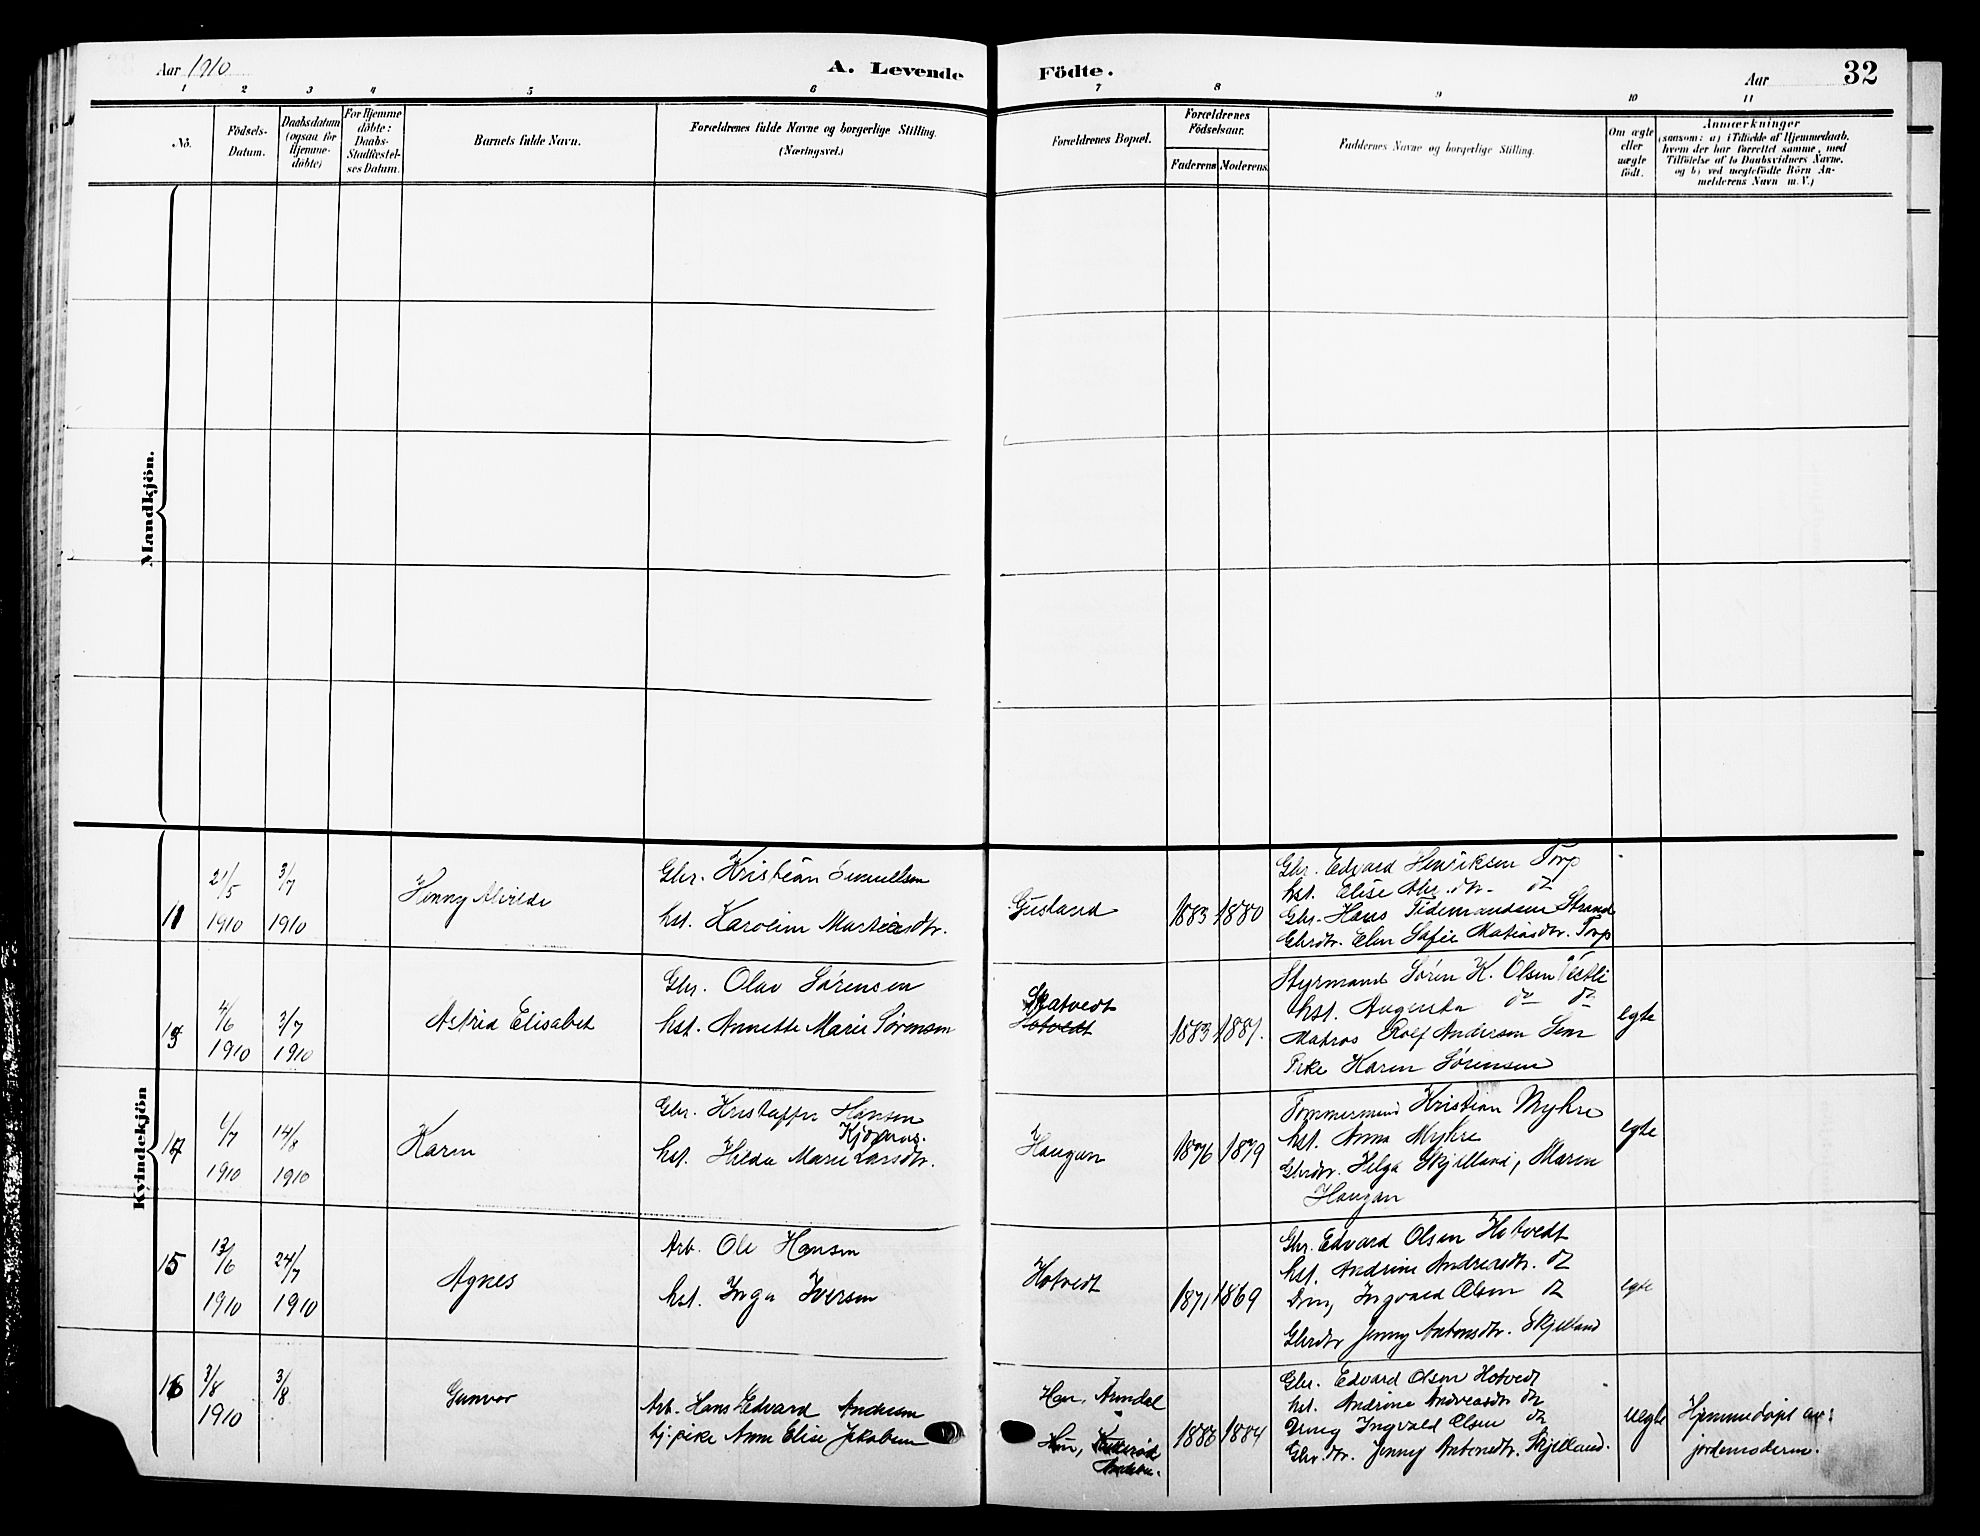 Aar 1910
A. Levende Födte.
Aar
32
1 2 3 4 5 6 7 8 9 10 11
Nö.
Födsels-
Datum.
Daabsdatum
(ogsaa for
Hjemme-
döbte)
For Hjemme
döbte:
Daabs-
Stadfæstel-
ses Datum.
Barnets fulde Navn.
Forældrenes fulde Navne og borgerlige Stilling.
(Næringsvei.)
Forældrenes Bopæl.
Forældrenes
Födselsaar.
Faderens Moderens.
Faddernes Navne og borgerlige Stilling.
Om ægte
eller
uægte
födt.
Anmærkninger
(saasom: a) i Tilfælde af Hjemmedaab,
hvem der har forrettet samme, med
Tilföielse af to Daabsvidners Navne.
og b) ved uægtefödte Börn An-
melderens Navn m. V.)
Mandkjön.
Kvindekjön
21/5
1910
3/7
1910
Gbr. Kristian
hst. Karolin
1883 1880
Gbr. Edvard Henriksen Torp
hst. Elise
Gbr. Hans Tidemandsen Strand
Gbrdtr. Elen Sofie Matiasdtr. Torp
4/6
1910
3/7
1910
Astrid Elisabet
Gbr. Olav Sørensen
hst. Annette Marie Sørensen
Skatvedt
Hotvedt
1883 1881.
Styrmand Sørn K. Olsen
hst. Augusta do do
Matros Rolf Andersen
Pike Karen Sørensen
egte
1/7
1910
14/8
1910
Karen
Gbr. Kristoffer Hansen
hst. Hilda Marie Larsdtr.
Haugan
1876 1879
Tømmermand Kristian Myhre
hst. Anna Myhre
Gbrdtr. Helga Skjelland, Maren
Haugan
egte
15
13/6
1910
24/7
1910
Agnes
Arb. Ole Hansen
hst. Inga Iversen
Hotvedt
1871 1869
Gbr. Edvard Olsen Hotvedt
hst. Andrine Andreasdtr. do
Ingvald Olsen do
Gbrdtr Jenny Antonsdtr. Skjelland
egte
16
3/8
1910
3/8
Gunvor
Arb. Hans Edvard Andersen
tj. pike Anne Elise Jakobsen
Han, Arendal
Hun,
1884
Gbr. Edvard Olsen Hotvedt
hst. Andrine Andreasdtr do
Ingvald Olsen do
Gbr. dtr. Jenny Antonsdtr. Skjelland.
uegte
Hjemmedøpt av
jordemoderen.